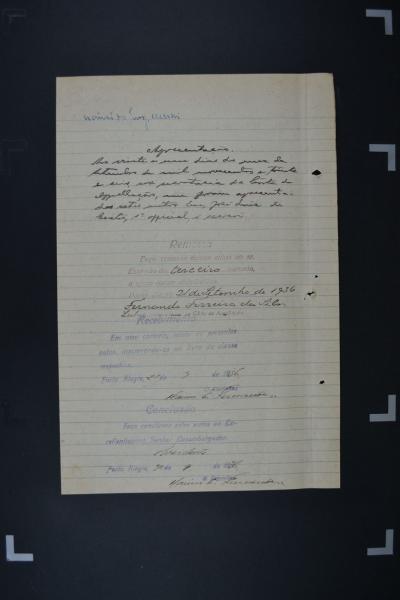 Apresentação.
Aos vinte e um dias do mez de
Setembro de mil novecentos e trinta
e seis na secretaria da Corte de
Appellação, me foram apresenta-
dos estes autos. Eu, José
1º official, o escrevi.
Remessa
Faço remessa destes autos ao sr.
Escrivão do terceiro cartorio,
21 de Setembro de 1936
Fernando Ferreira da Silva
Recebimento
Em meu cartorio, recebi os presentes
autos, descarregando-os no livro de classe
respectiva.
Porto Alegre, 21 de 9 de 1936.
O escrivão
Conclusão
Faço conclusos estes autos ao Ex-
cellentissimo Senhor Desembargador
Presidente
Porto Alegre, de 9 de 1936.
O escrivão